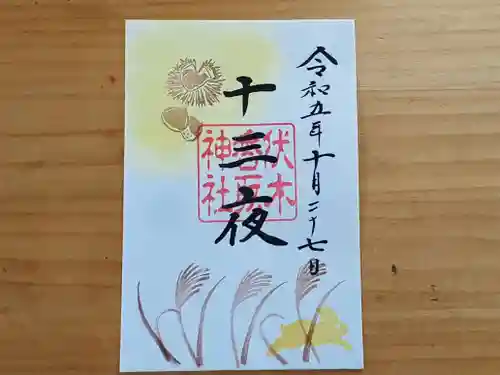 令和五年十月二十七日
十三夜
伏木香取神社